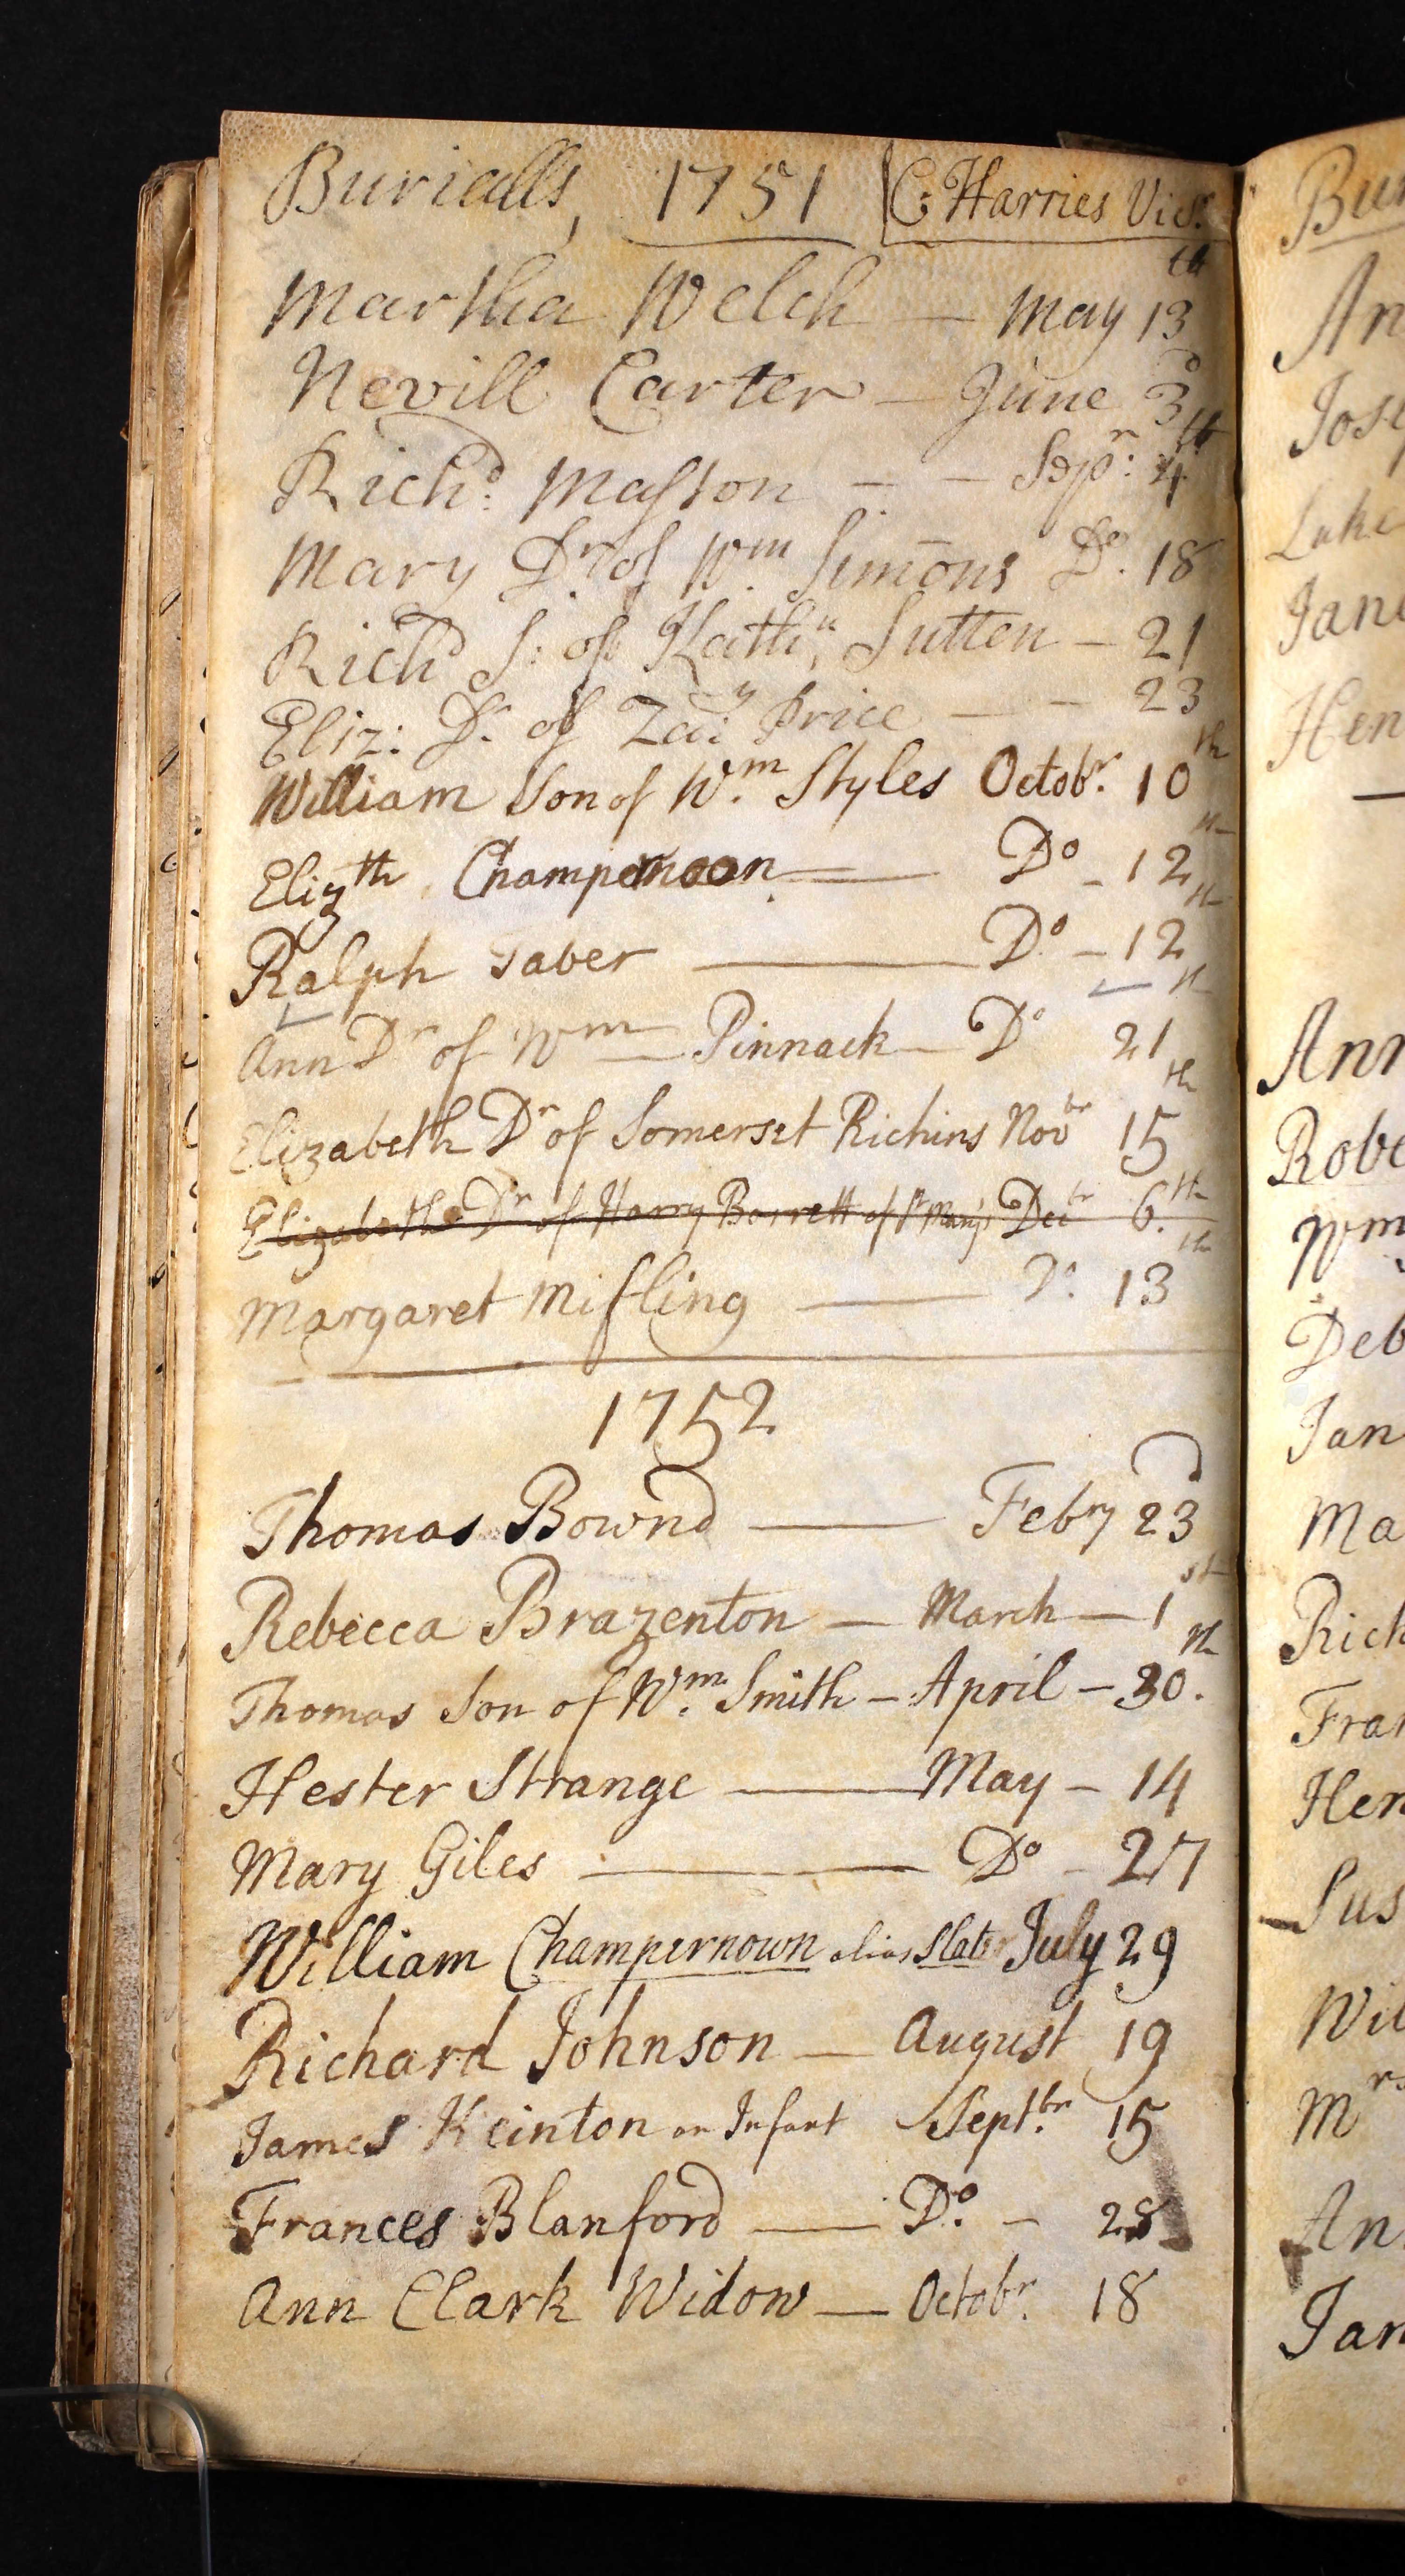 Burialls, 1751 C: Harries Vicr.
Martha Welch — May 13th
Nevill Carter — June 3d
Richd. Maſson — — Sepr: 4th
Mary Dr. of Wm. Simons Do. 18
Richd S: of Kathn. Sutten — 21
Eliz: Dr. of Zay: Price — — 23
William Son of Wm. Styles Octobr. 10th
Elizth Champernoon — Do — 12th
Ralph Taber — Do — 12th
Ann Dr of Wm Pinnack — Do 21th
Elizabeth Dr of Somerset Richins Novbr 15th
Elizabeth Dr of Harry Barrett of St Mary's Decbr 6th
Margaret Mifling — Do. 13th
1752
Thomas Bownd — Febry 23d
Rebecca Brazenton — March — 1st
Thomas Son of Wm. Smith — April — 30th.
Hester Strange — May — 14
Mary Giles — Do — 27
William Champernown alias Slater July 29
Richard Johnson — August 19
James Keinton an Infant Septbr. 15
Frances Blanford — Do. — 28
Ann Clark Widow — Octobr. 18